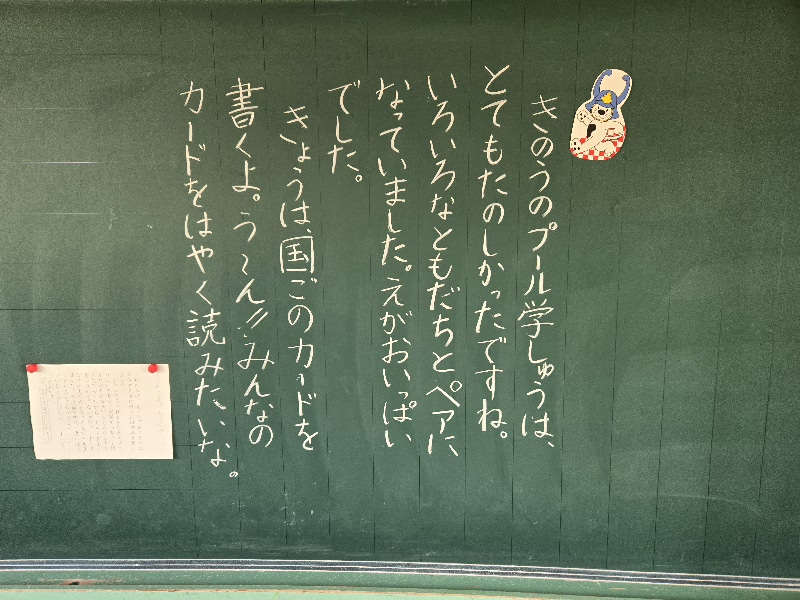 きのうのプール学しゅうは、
とてもたのしかったですね。
いろいろなともだちとペアに
なっていました。えがおいっぱい
でした。
きょうは、国ごのカードを
書くよ。う〜ん!!みんなの
カードをはやく読みたいな。